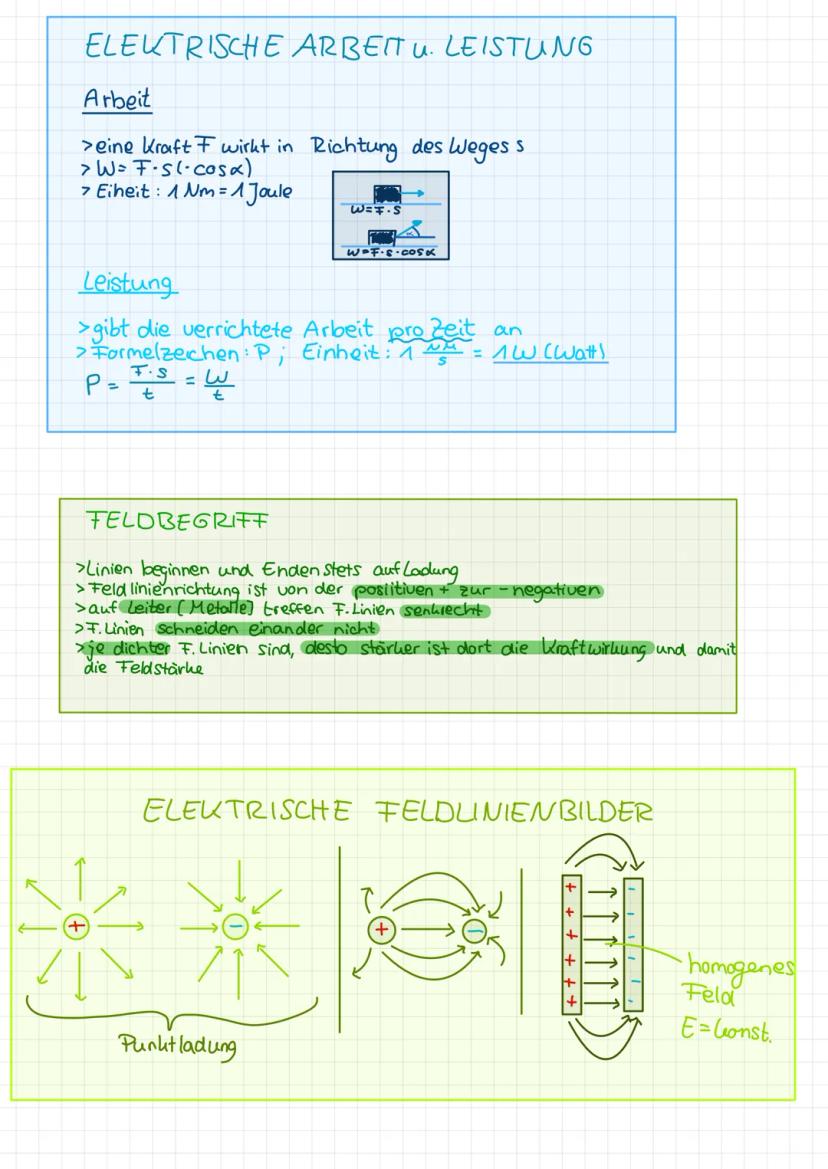 ELEKTRISCHE ARBEIT u. LEISTUNG
Arbeit
>eine Kraft F wirkt in Richtung des Weges s
> W= F·s(·cosα)
> Eiheit: 1 Nm = 1 Joule
W=F·s
α
W=F·s·cosα
Leistung
>gibt die verrichtete Arbeit pro Zeit an
> Formelzechen: P; Einheit: 1 NM/s = 1W (Watt)
P = F·s/t = W/t
FELDBEGRIFF
>Linien beginnen und Enden stets auf Ladung
> Feldlinienrichtung ist von der postitiven + zur - negativen
>auf Leiter [Metalle] treffen F.Linien senkrecht
>F.Linien schneiden einander nicht
>je dichter F.Linien sind, desto stärker ist dort die Kraftwirkung und damit
die Feldstärke
ELEKTRISCHE FELDLINIENBILDER
+ -
+ -
+ -
+ -
+ -
+ -
+ -
+ -
homogenes
Feld
E=konst.
Punktladung